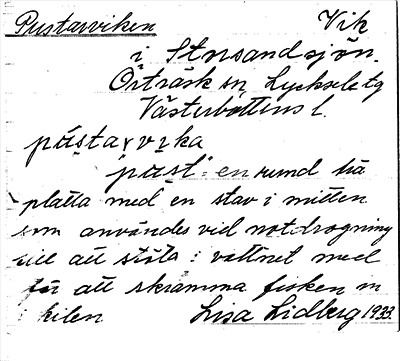 Pustarviken Vik
i Storsandsjön.
Örträsk sn, Lycksele tg
Västerbottens l.
pästarvıka
"päst" = en rund trä
platta med en stav i mitten
som användes vid notdragning
till att stöta i vattnet med
för att skrämma fisken in
i kilen Lisa Lidberg 1933